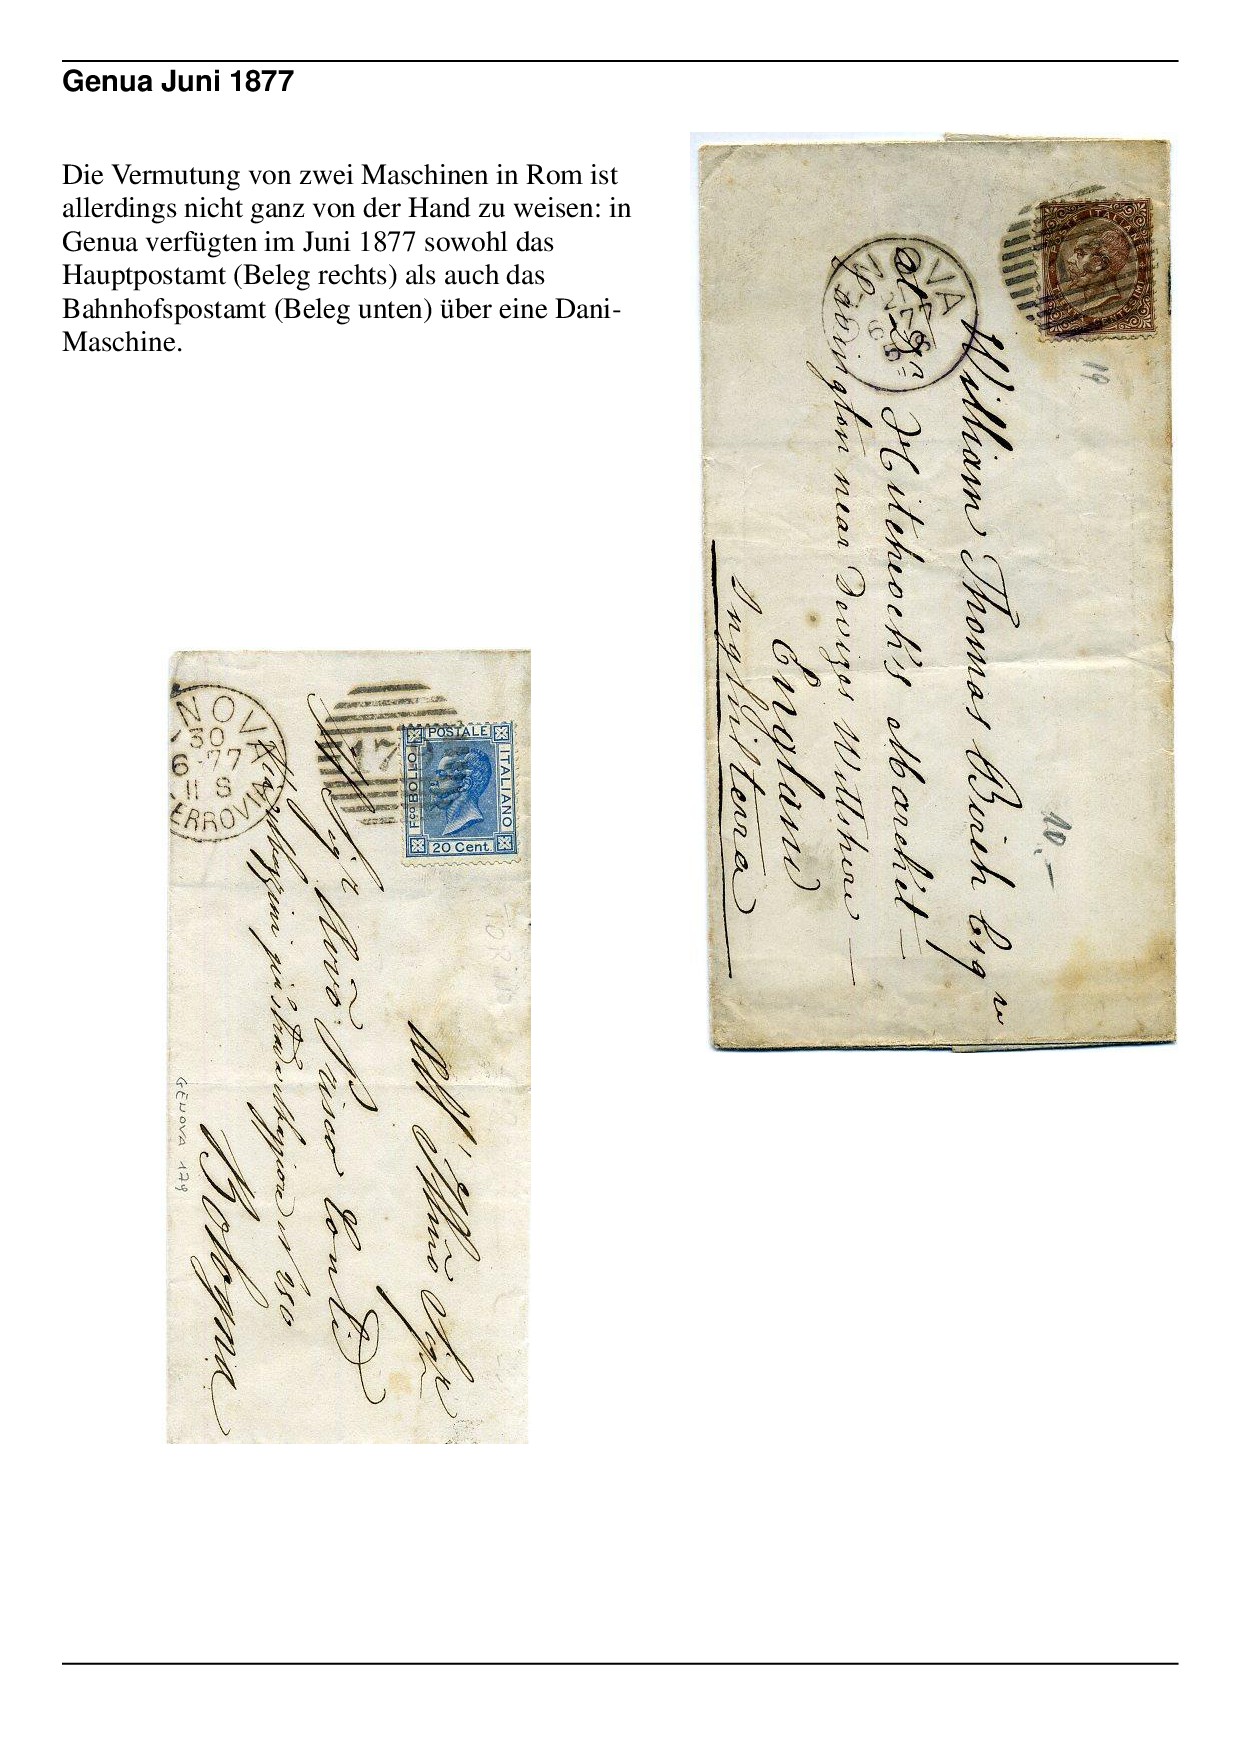 Genua Juni 1877
Die Vermutung von zwei Maschinen in Rom ist
allerdings nicht ganz von der Hand zu weisen: in
Genua verfügten im Juni 1877 sowohl das
Hauptpostamt (Beleg rechts) als auch das
Bahnhofspostamt (Beleg unten) über eine Dani-
Maschine.
NOVA
6 77
5 S
19
William Thomas Birch Esqre
at
Hitchcock's Marchit
near Devizes Willshire
England
Inghilterra
10.-
NOVA
30
6-77
11 S
FERROVIA
17
POSTALE
Fco BOLLO
ITALIANO
20 Cent.
All' Illmo Sigr
Conti
250
Bologna
GENOVA 179